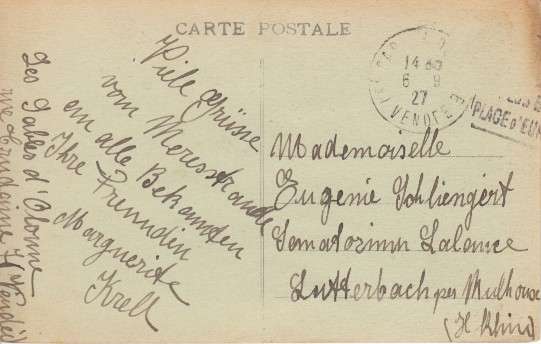 CARTE POSTALE
Viele Grüsse
vom Meresstrande
em alle Bekannten
Ihre Freundin
Marguerite
Krell
Les Sables d'Olonne
(Vendée)
14 30
6 9
27
VENDEE
PLAGE d'EUR
Mademoiselle
Eugenie Schliengert
Sematorimm Lalance
Lutterbach per Mulhouse
(H Rhin)